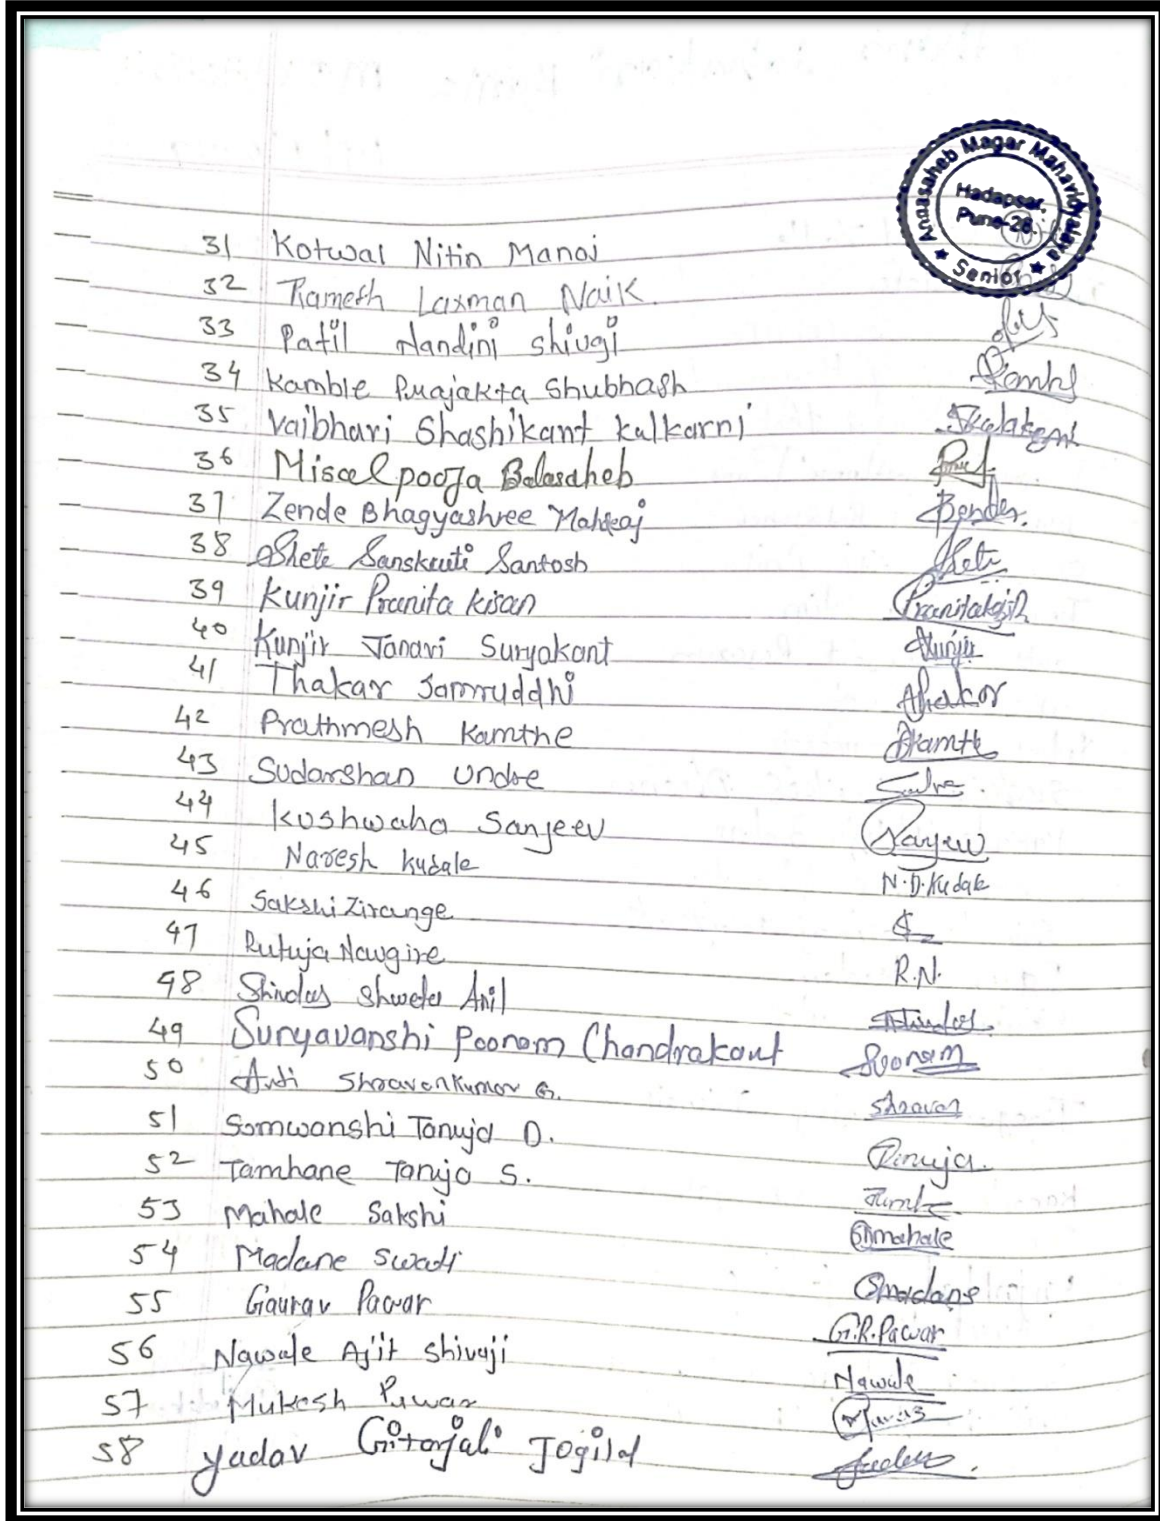 Annasaheb Magar Mahavidyalaya
Hadapsar,
Pune-28.
★ Senior ★
31 Kotwal Nitin Manoj
32 Ramesh Laxman Naik.
33 Patil Nandini Shivgi
34 Kamble Prajakta Shubhash
35 Vaibhari Shashikant Kulkarni
36 Miscel pooja Balasaheb
37 Zende Bhagyashree
38 Shete Sanskruti Santosh Shete
39 Kunjir Pranita Kisan
40 Kunjir Tanavi Suryakant Kunjir
41 Thakar Samruddhi Thakar
42 Prathmesh Kamthe Kamthe
43 Sudarshan Undre
44 Kushwaha Sanjeev Sanjeev
45 Naresh Kudale N.D.Kudale
46 Sakshi Zirange
47 Rutuja Nawgire R.N.
48 Shindas Shweta Anil
49 Suryavanshi Poonam Chandrakant Poonam
50 Shravankumar G. Shravan
51 Somwanshi Tanuja D. Tanuja.
52 Tamhane Tanuja S.
53 Mahale Sakshi Smahale
54 Madane Swati Smadane
55 Gaurav Pawar G.R.Pawar
56 Nawale Ajit Shivaji Nawale
57 Mukesh Pawar
58 Yadav Gitanjali Jogilal